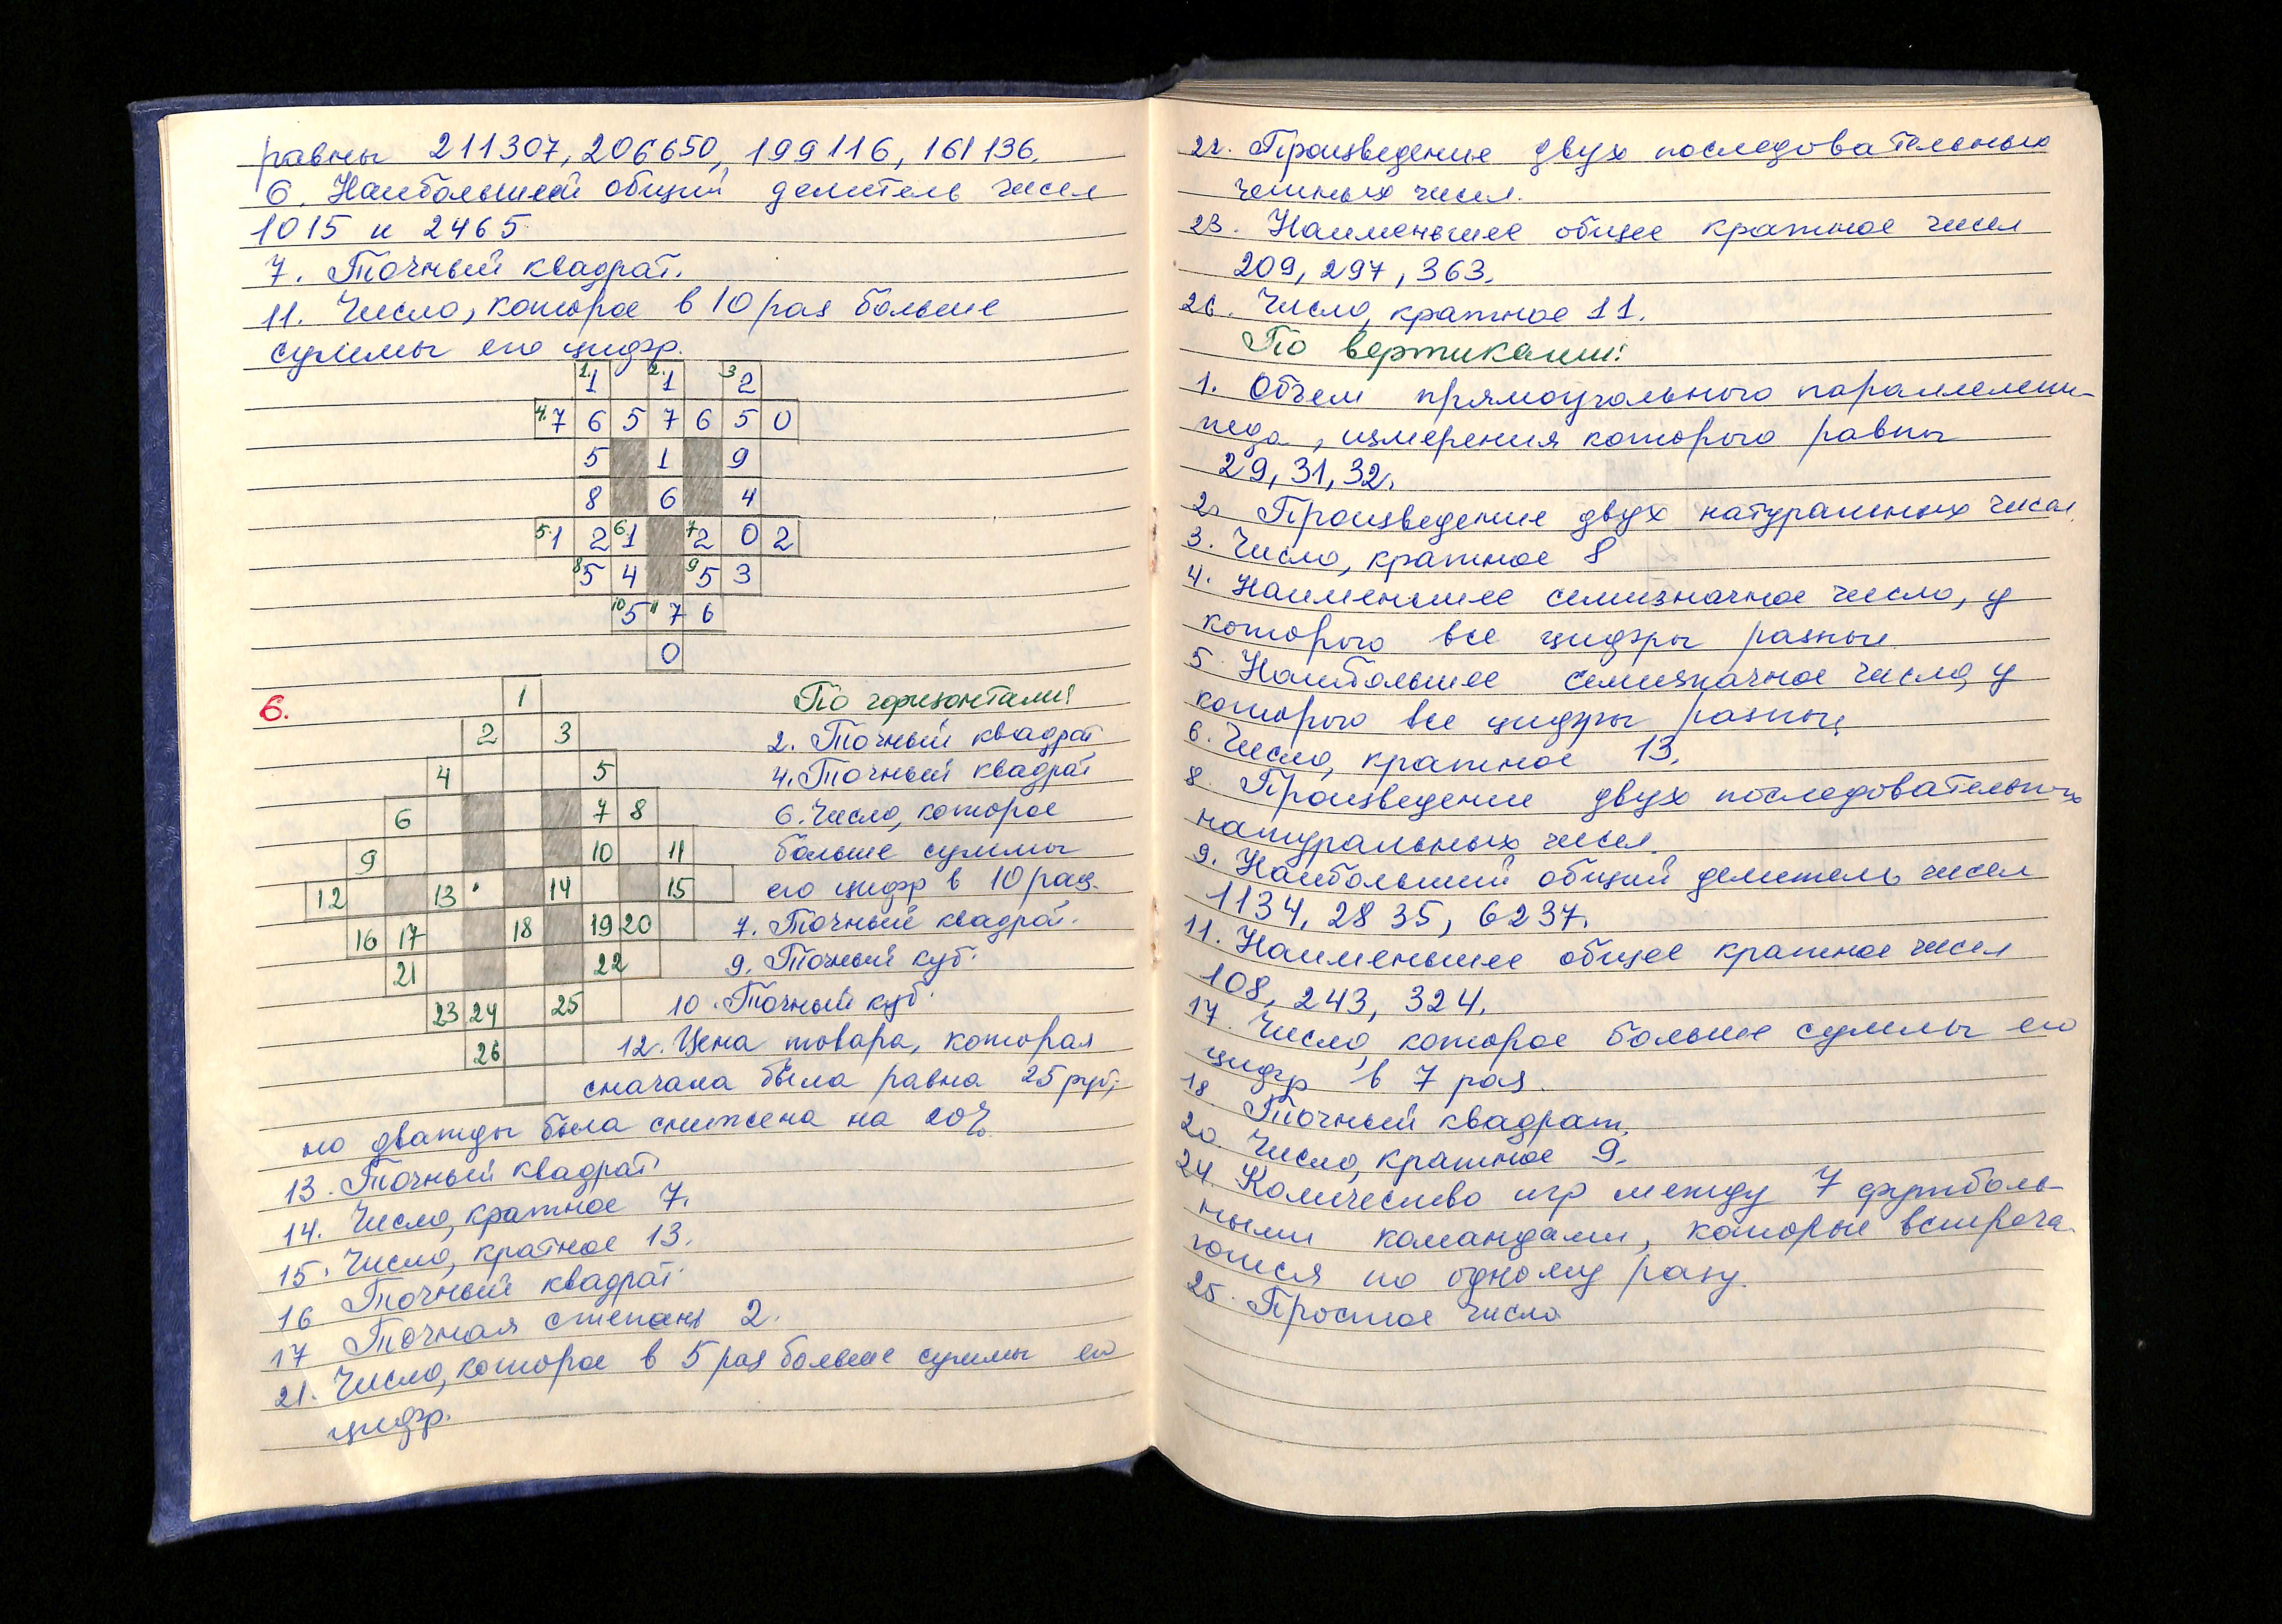 равны 211307, 206650, 199116, 161136.
6. Наибольший общий делитель чисел
1015 и 2465
7. Точный квадрат.
11. Число, которое в 10 раз больше
суммы его цифр.
1. 1 2. 1 3 2
4. 7 6 5 7 6 5 0
5 1 9
8 6 4
5. 1 2 6 1 7 2 0 2
8 5 4 9 5 3
10 5 11 7 6
0
6.
1
2 3
4 5
6 7 8
9 10 11
12 13 14 15
16 17 18 19 20
21 22
23 24 25
26
По горизонтали:
2. Точный квадрат
4. Точный квадрат
6. Число, которое
больше суммы
его цифр в 10 раз.
7. Точный квадрат.
9. Точный куб.
10. Точный куб.
12. Цена товара, которая
сначала была равна 25 руб,
но дважды была снижена на 20%
13. Точный квадрат
14. Число, кратное 7.
15. Число, кратное 13.
16 Точный квадрат
17 Точная степень 2.
21. Число, которое в 5 раз больше суммы его
цифр.
22. Произведение двух последовательных
четных чисел.
23. Наименьшее общее кратное чисел
209, 297, 363.
26. Число, кратное 11.
По вертикали:
1. Объем прямоугольного параллелепи-
педа, измерения которого равны
29, 31, 32.
2. Произведение двух натуральных чисел
3. Число, кратное 8
4. Наименьшее семизначное число, у
которого все цифры разные
5. Наибольшее семизначное число, у
которого все цифры разные
6. Число, кратное 13.
8. Произведение двух последовательных
натуральных чисел.
9. Наибольший общий делитель чисел
1134, 2835, 6237.
11. Наименьшее общее кратное чисел
108, 243, 324.
17. Число, которое больше суммы его
цифр в 7 раз.
18 Точный квадрат.
20 Число, кратное 9.
24. Количество игр между 7 футболь-
ными командами, которые встреча
ются по одному разу.
25. Простое число